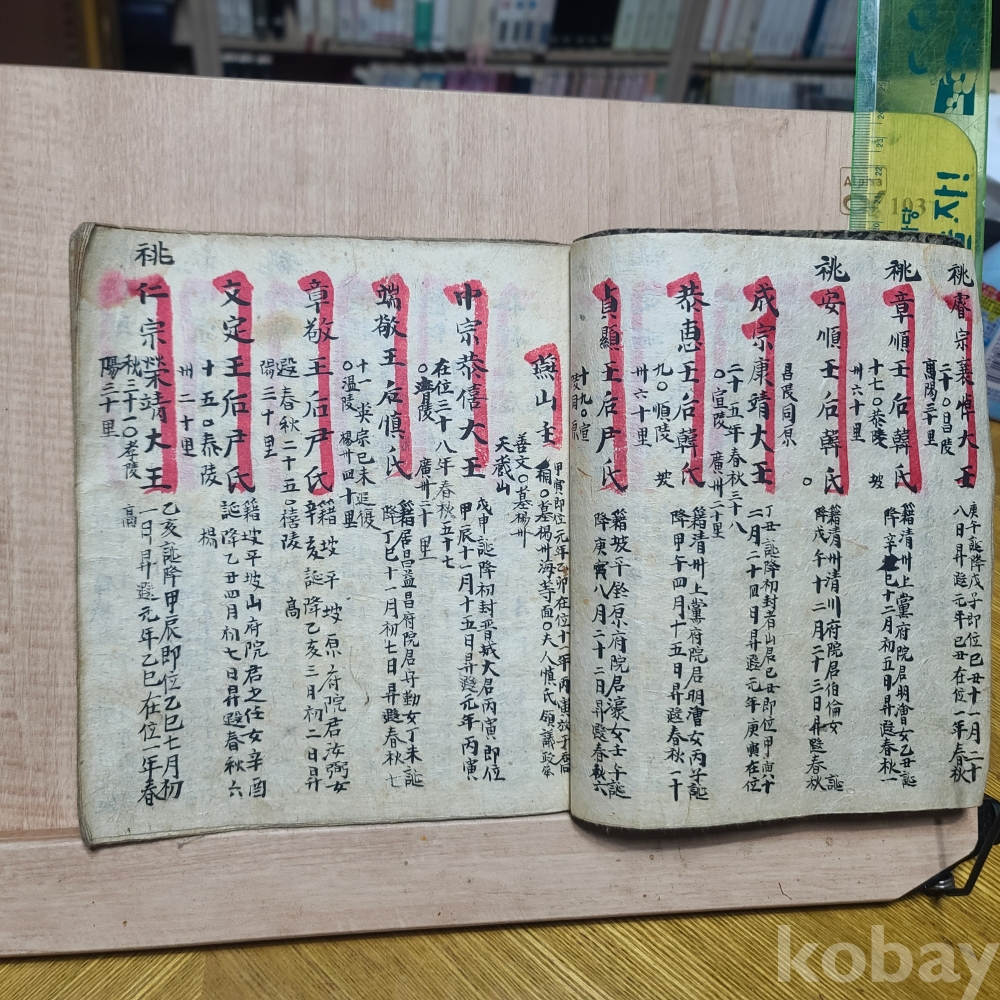 祧
睿宗襄悼大王
庚午誕降戊子即位己丑十一月二十
八日昇遐元年己丑在位一年春秋
二十〇昌陵
高陽三十里
祧
章順王后韓氏
籍清州上黨府院君明澮女乙丑誕
降辛巳十二月初五日昇遐春秋一
十七〇恭陵 坡
州六十里
祧
安順王后韓氏
籍清州清川府院君伯倫女 誕
降 戊午十二月二十三日昇遐春秋
〇
昌陵同原
成宗康靖大王
丁丑誕降初封者山君己丑即位甲寅十
二月二十四日昇遐元年庚寅在位
二十五年春秋三十八
〇宣陵 廣州二十里
恭惠王后韓氏
籍清州上黨府院君明澮女丙子誕
降甲午四月十五日昇遐春秋一十
九〇順陵 坡
州六十里
貞顯王后尹氏
籍坡平鈴原府院君濠女壬午誕
降庚寅八月二十二日昇遐春秋六
十九〇宣
陵同原
燕山主
甲寅即位元年乙卯在位十一年丙寅放于喬桐
〇墓楊州海等面〇夫人慎氏領議政承
善文〇墓楊州
天藏山
中宗恭僖大王
戊申誕降初封晋城大君丙寅即位
甲辰十一月十五日昇遐元年丙寅
在位三十八年春秋五十七
〇靖陵 廣州二十里
端敬王后慎氏
籍居昌益昌府院君守勤女丁未誕
降丁巳十一月初七日昇遐春秋七
十一 英宗己未追復
〇溫陵 楊州四十里
章敬王后尹氏
籍坡平坡原府院君汝弼女
辛亥誕降乙亥三月初二日昇
遐春秋二十五〇禧陵 高
陽三十里
文定王后尹氏
籍坡平坡山府院君之任女辛酉
誕降乙丑四月初七日昇遐春秋六
十五〇泰陵 楊
州二十里
祧
仁宗榮靖大王
乙亥誕降甲辰即位乙巳七月初
一日昇遐元年乙巳在位一年春
秋三十〇孝陵 高
陽三十里
Alpha
103
자!
kobay